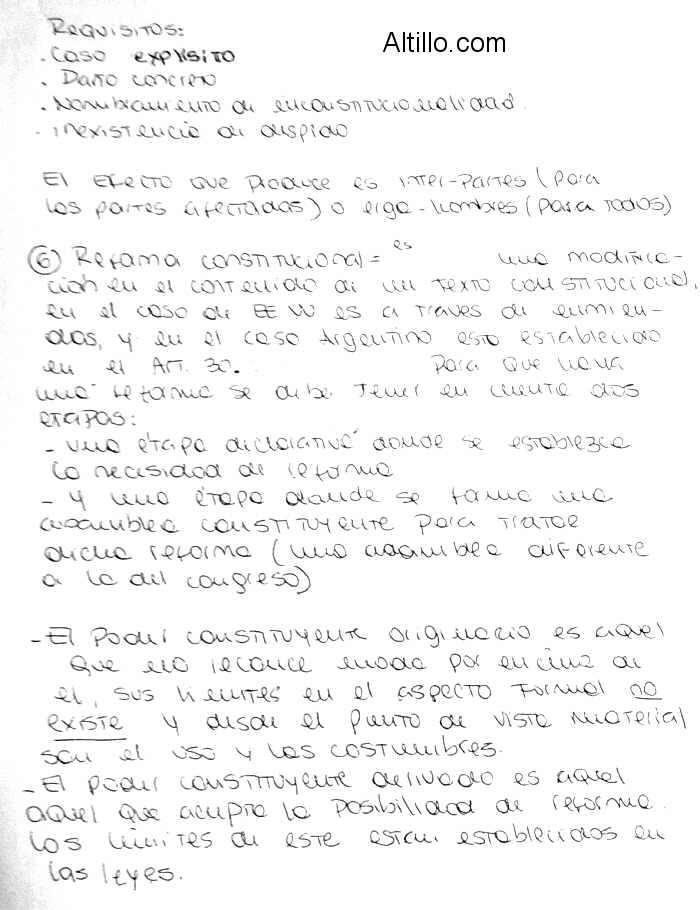 Requisitos:
Altillo.com
. Caso explísito
. Daño concreto
. Nombramiento de inconstitucionalidad.
. inexistencia de
El Efecto que produce es inter-partes (para
las partes afectadas) o erga-hombres (para todos)
⑥ Reforma constitucional = es una modifica-
ción en el contenido de un texto constitucional,
en el caso de EE UU es a través de enmien-
das, y en el caso Argentino esta establecido
en el Art. 30. Para que haya
una reforma se debe tener en cuenta dos
etapas:
- una étapa declarativa donde se establezca
la necesidad de reforma
- y una étapa donde se forma una
asamblea constituyente para tratar
dicha reforma (una asamblea diferente
a la del congreso)
- El Poder constituyente originario es aquel
que no reconce nada por encima de
el, sus limites en el aspecto formal no
existe y desde el punto de vista material
son el uso y las costumbres.
- El poder constituyente derivado es aquel
aquel que acepta la posibilidad de reforma.
Los límites de este estan establecidos en
las leyes.